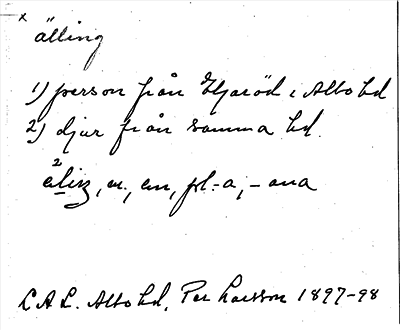 x
älling
1) person från Eljaröd i Albo hd
2) djur från samma hd.
2
, m., -en, pl. -a, -ana
L A L. Albo hd, Per Larsson 1897-98